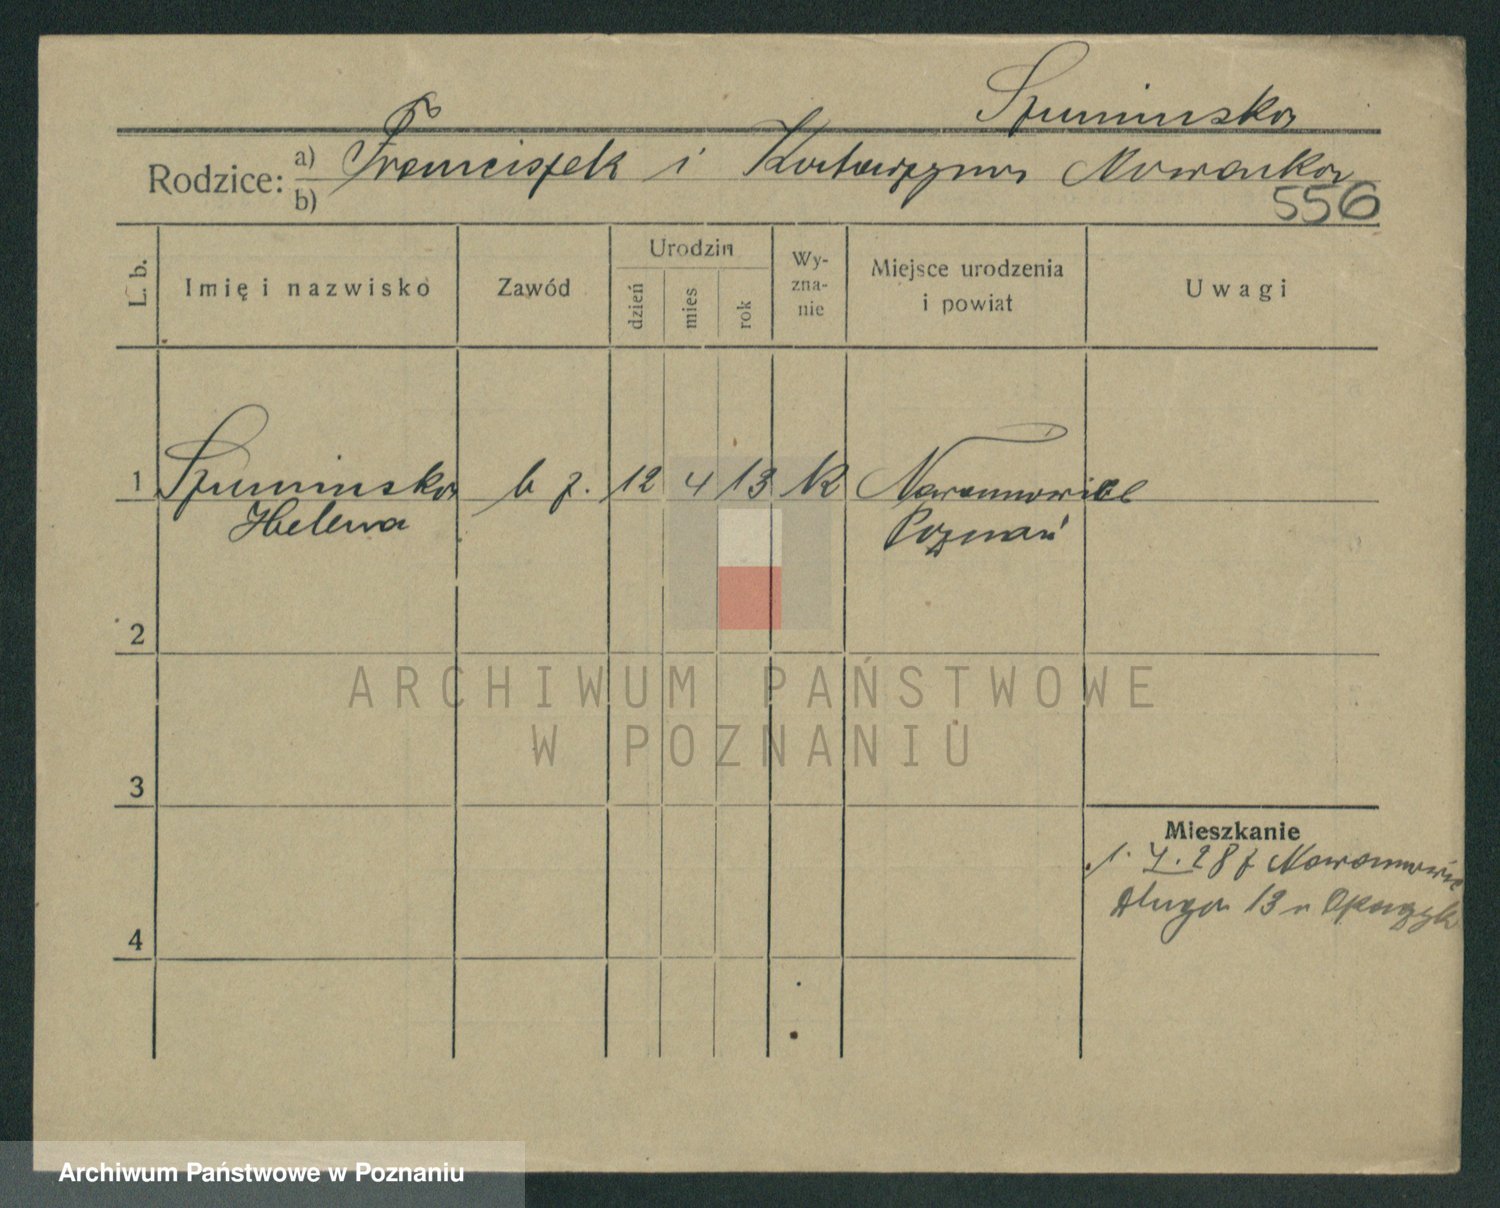 Szumińska
Rodzice: a) Franciszek i Katarzyna Nowacka
b)
556
L. b. Imię i nazwisko Zawód Urodzin dzień mies rok Wyznanie Miejsce urodzenia i powiat Uwagi
1 Szumińska b z. 12 4 13 k Naramowice
Helena Poznań
2
ARCHIWUM PAŃSTWOWE
W POZNANIU
3
Mieszkanie
1. 7. 28 z Naramowic
Długa 13 u
4
Archiwum Państwowe w Poznaniu